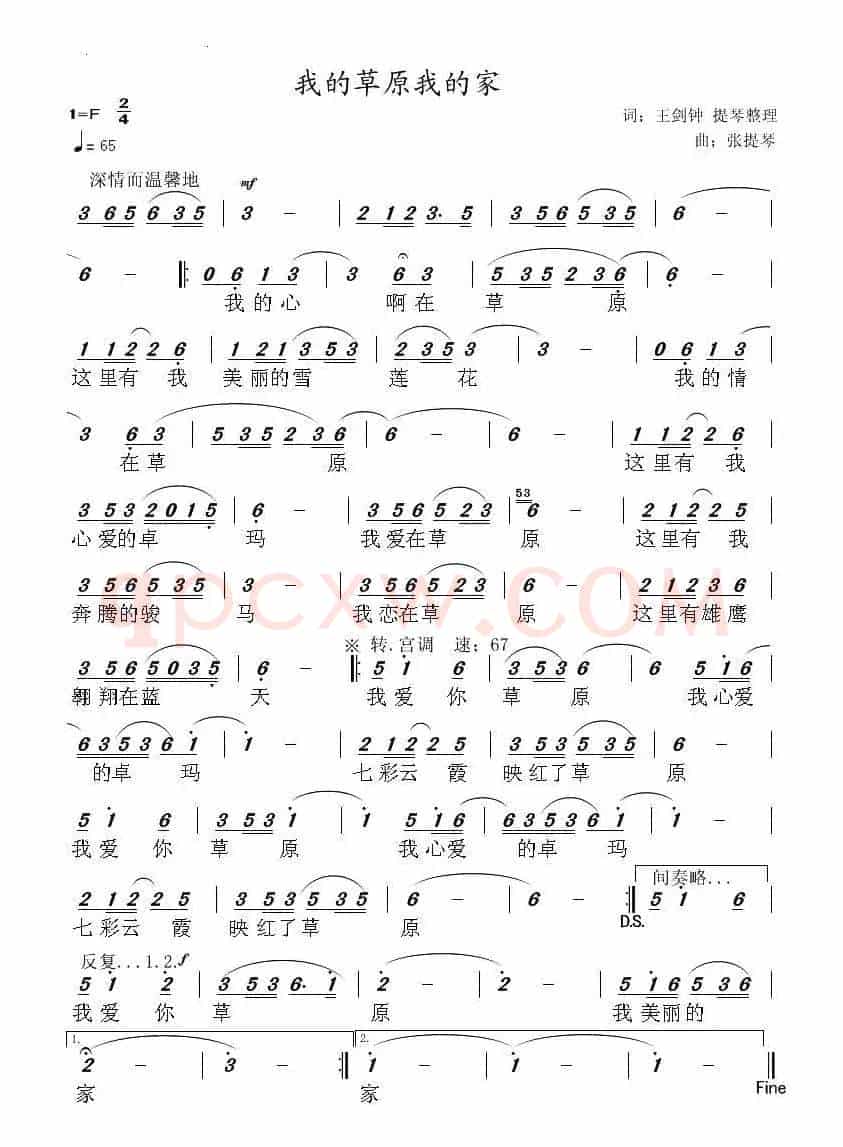 我的草原我的家
1=F 2/4
词：王剑钟 提琴整理
♩= 65
曲：张提琴
深情而温馨地 mf
3 6 5 6 3 5 | 3 - | 2 1 2 3· 5 | 3 5 6 5 3 5 | 6 -
6 - ‖: 0 6 1 3 | 3 6 3 | 5 3 5 2 3 6 |
我的心 啊在 草 原
1 1 2 2 6 | 1 2 1 3 5 3 | 2 3 5 3 | 3 - | 0 6 1 3
这里有 我 美丽的雪 莲 花 我的情
3 6 3 | 5 3 5 2 3 6 | 6 - | 6 - | 1 1 2 2 6 |
在草 原 这里有 我
3 5 3 2 0 1 5 | 6 - | 3 5 6 5 2 3 | 53 6 - | 2 1 2 2 5 |
心爱的卓 玛 我爱在草 原 这里有 我
3 5 6 5 3 5 | 6 - | 3 5 6 5 2 3 | 6 - | 2 1 2 3 6 |
奔腾的骏 马 我恋在草 原 这里有雄鹰
※ 转.宫调 速；67
3 5 6 5 0 3 5 | 6 - ‖: 5 1 6 | 3 5 3 5 | 5 1 6
翱翔在蓝 天 我爱你 草 原 我心爱
6 3 5 3 6 1 | 1 - | 2 1 2 2 5 | 3 5 3 5 3 5 | 6 -
的卓 玛 七彩云 霞 映红了草 原
5 1 6 | 3 5 3 1 | 1 - | 5 1 6 | 6 3 5 3 6 1 | 1 - |
我爱 你 草 原 我心爱 的卓 玛
间奏略...
2 1 2 2 5 | 3 5 3 5 3 5 | 6 - | 6 - :‖ 5 1 6 |
D.S.
七彩云 霞 映红了草 原
反复...1.2. f
5 1 2 | 3 5 3 6· 1 | 2 - | 2 - | 5 1 6 5 3 5 |
我爱 你 草 原 我美丽的
1. 2.
2 - | 3 - :‖ 1 - | 1 - | 1 - ‖
家 家
Fine
qpcxw.COM